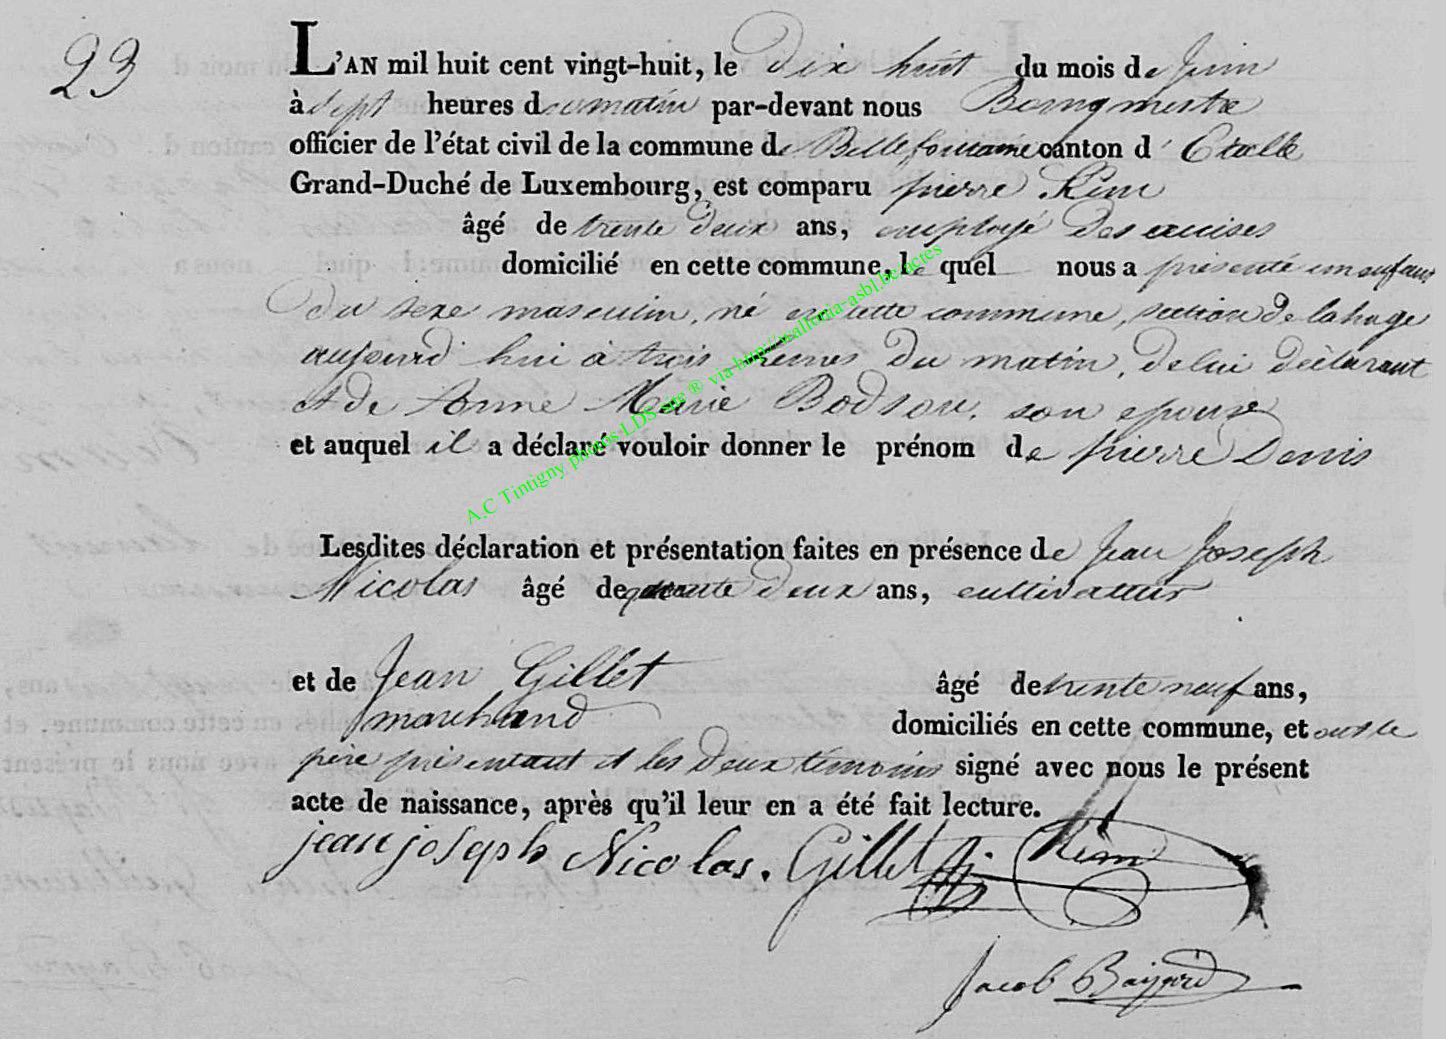 23
L'AN mil huit cent vingt-huit, le Dix huit du mois de Juin
à sept heures du matin par-devant nous Bourgmestre
officier de l'état civil de la commune de Bellefontaine canton d' Etalle
Grand-Duché de Luxembourg, est comparu pierre
âgé de trente deux ans, employé des accises
domicilié en cette commune, le quel nous a présenté un enfant
Du sexe masculin, né en cette commune, section de lahage
aujourd'hui à trois heures Du matin, de lui déclarant
et de Anne Marie Bodson, son epouse
et auquel il a déclaré vouloir donner le prénom de pierre Denis
Lesdites déclaration et présentation faites en présence de Jean Joseph
Nicolas âgé de quarante deux ans, cultivateur
et de Jean Gillet âgé de trente neuf ans,
marchand domiciliés en cette commune, et ont le
père présentant et les Deux témoins signé avec nous le présent
acte de naissance, après qu'il leur en a été fait lecture.
jean joseph Nicolas. Gillet
Jacob Bayard
A.C Tintigny photos LDS site ® via http://wallonia-asbl.be/actes